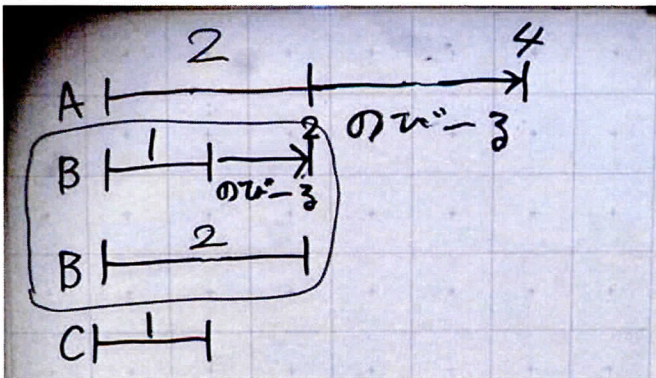 2 4
A のびーる
B 1 2 のびーる
B 2
C 1